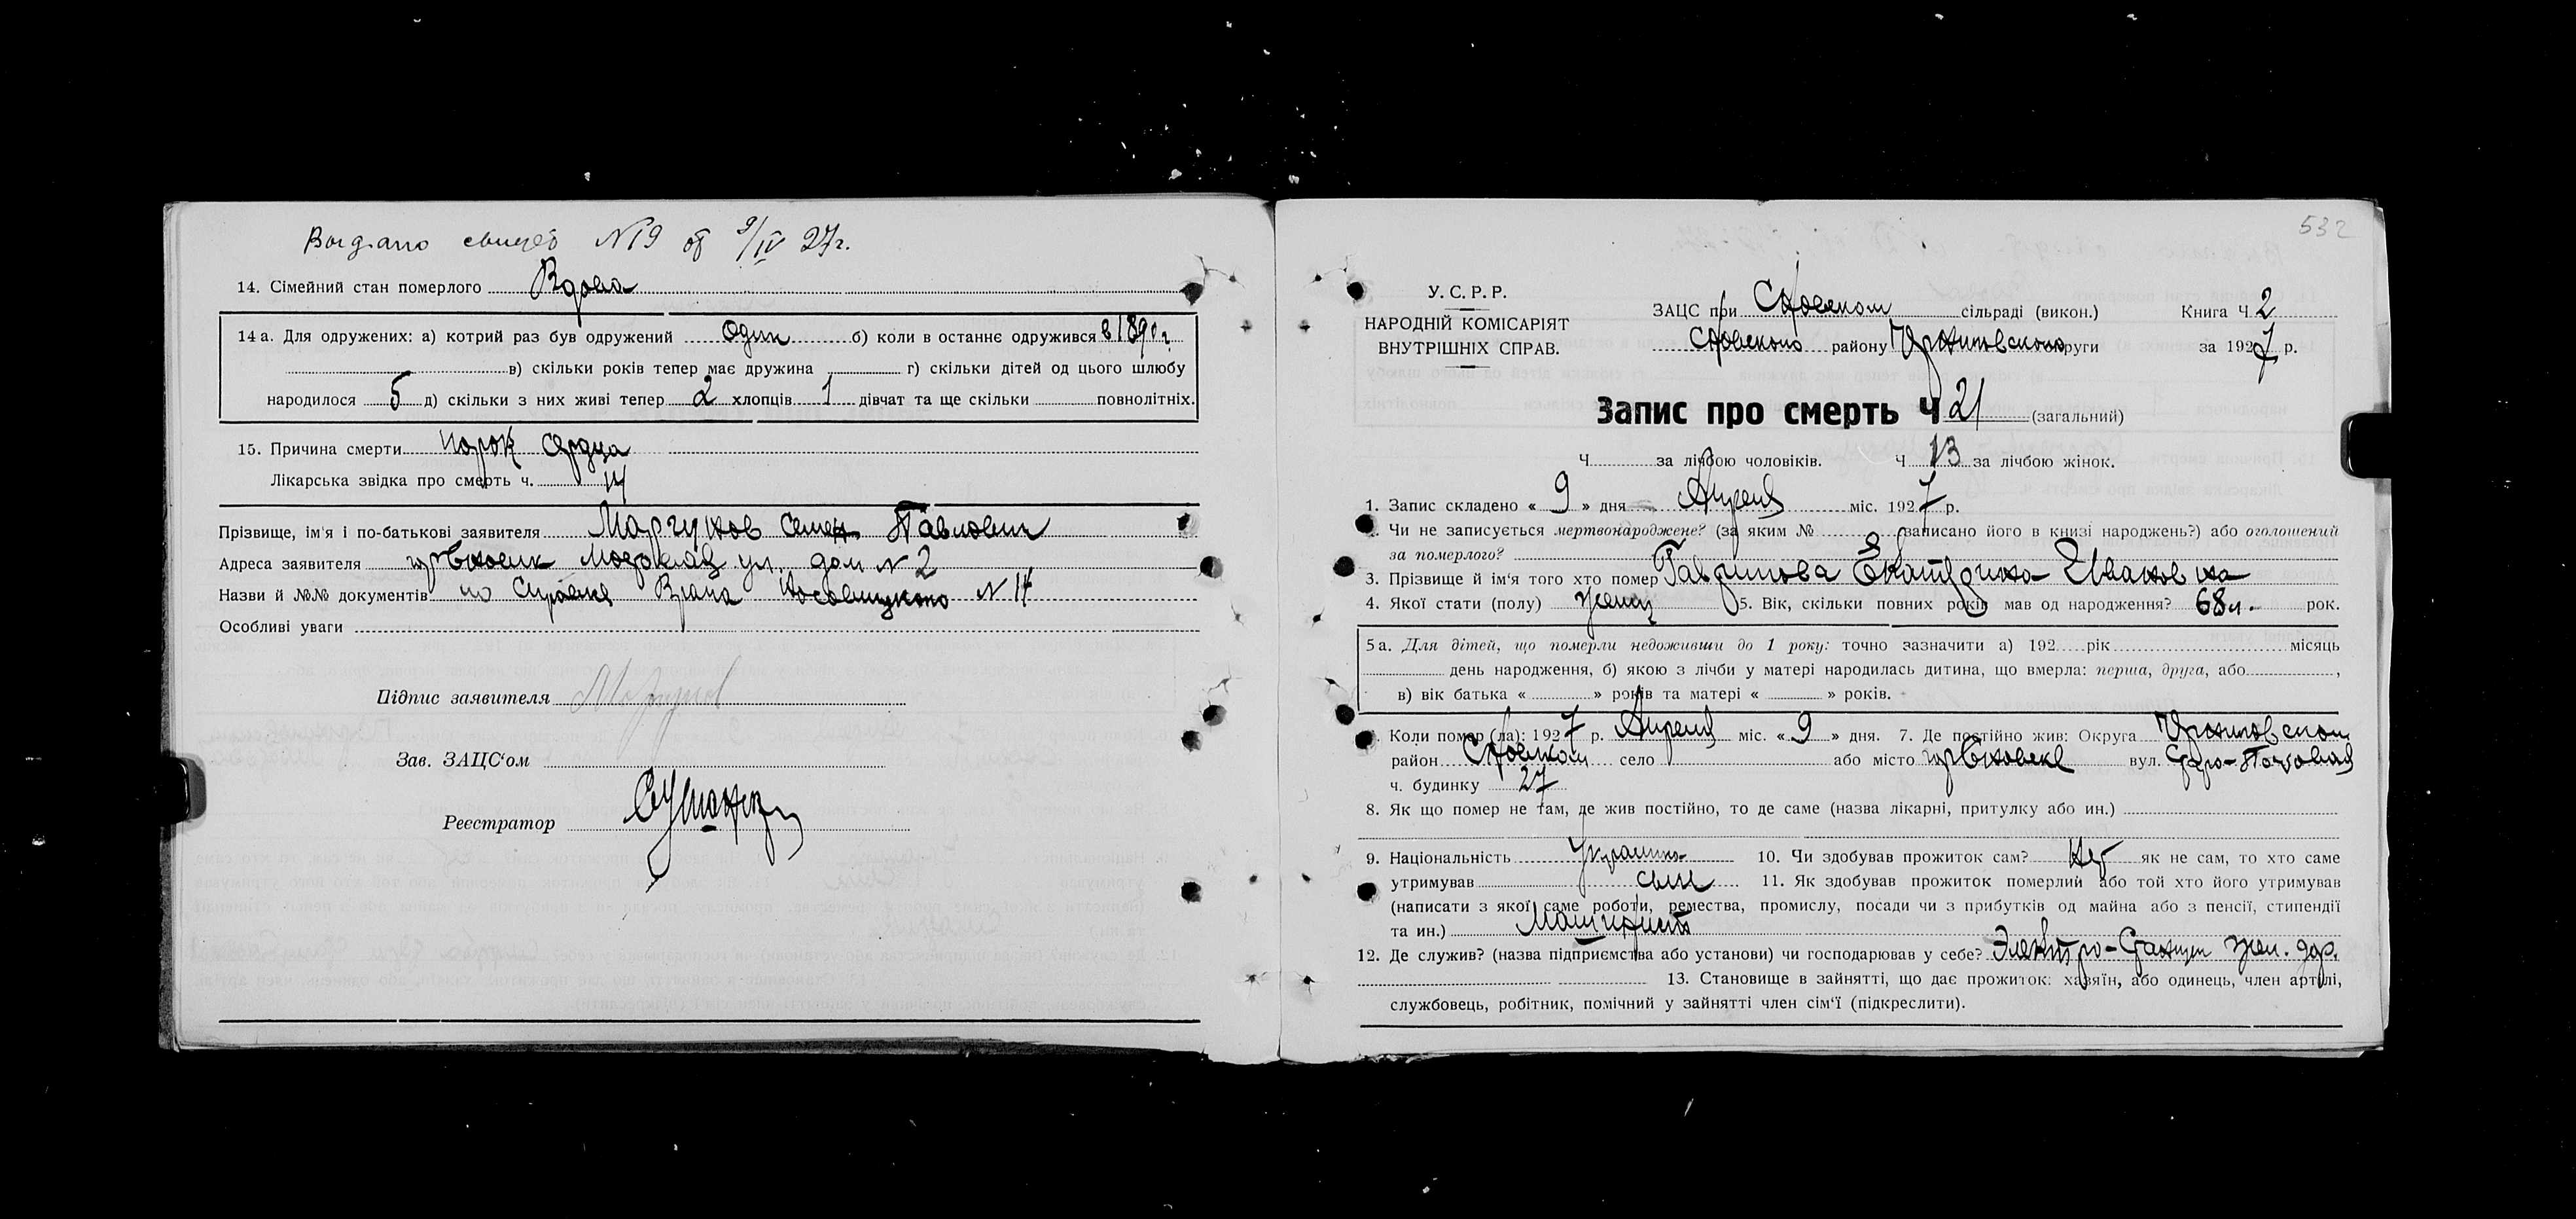 Выдано свидет №19 от 9/IV 27г.
14. Сімейний стан померлого Вдова
14 а. Для одружених: а) котрий раз був одружений один б) коли в останнє одружився в 1890 г
в) скільки років тепер має дружина г) скільки дітей од цього шлюбу
народилося 5 д) скільки з них живі тепер 2 хлопців 1 дівчат та ще скільки повнолітніх.
15. Причина смерти порок сердца
Лікарська звідка про смерть ч. 14
Прізвище, ім'я і по-батькові заявителя Моргунов Семен Павлович
Адреса заявителя ул. дом № 2
Назви й №№ документів по Справке Врача № 14
Особливі уваги
Підпис заявителя Моргунов
Зав. ЗАЦС'ом
Реєстратор
532
У. С. Р. Р.
НАРОДНІЙ КОМІСАРІЯТ
ВНУТРІШНІХ СПРАВ.
ЗАЦС при сільраді (викон.) Книга Ч 2
району округи за 1927 р.
Запис про смерть Ч 21 (загальний)
Ч за лічбою чоловіків. Ч 13 за лічбою жінок.
1. Запис складено « 9 » дня Апреля міс. 1927 р.
Чи не записується мертвонароджене? (за яким № записано його в книзі народжень?) або оголошений
за померлого?
3. Прізвище й ім'я того хто помер Гаврилова Екатерина Ивановна
4. Якої стати (полу) женск 5. Вік, скільки повних років мав од народження? 68 л. рок.
5 а. Для дітей, що померли недоживши до 1 року: точно зазначити а) 192 рік місяць
день народження, б) якою з лічби у матері народилась дитина, що вмерла: перша, друга, або ,
в) вік батька « » років та матері « » років.
Коли помер (ла): 1927 р. Апреля міс. « 9 » дня. 7. Де постійно жив: Округа
район село або місто вул.
ч. будинку 27
8. Як що помер не там, де жив постійно, то де саме (назва лікарні, притулку або ин.)
9. Національність Украинка 10. Чи здобував прожиток сам? Нет як не сам, то хто саме
утримував сын 11. Як здобував прожиток померлий або той хто його утримував
(написати з якої саме роботи, ремества, промислу, посади чи з прибутків од майна або з пенсії, стипендії
та ин.) Машинист
12. Де служив? (назва підприємства або установи) чи господарював у себе? Электро-Станции жел. дор.
13. Становище в зайнятті, що дає прожиток: хазяїн, або одинець, член артілі,
службовець, робітник, помічний у зайнятті член сім'ї (підкреслити).